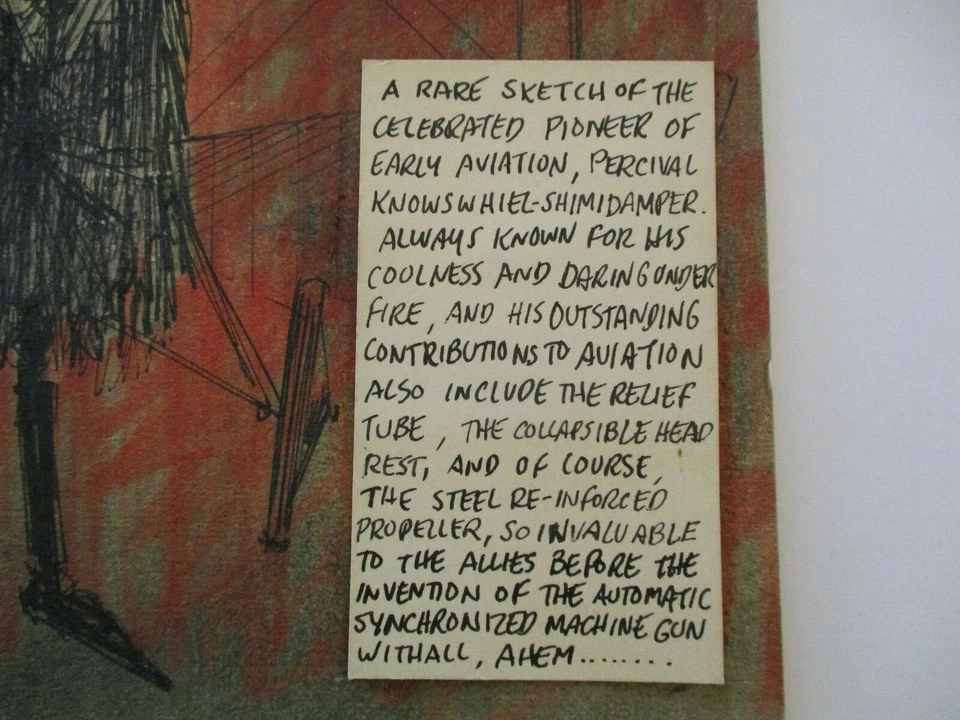 A RARE SKETCH OF THE
CELEBRATED PIONEER OF
EARLY AVIATION, PERCIVAL
KNOWSWHIEL-SHIMIDAMPER.
ALWAYS KNOWN FOR HIS
COOLNESS AND DARING UNDER
FIRE, AND HIS OUTSTANDING
CONTRIBUTIONS TO AVIATION
ALSO INCLUDE THE RELIEF
TUBE, THE COLLAPSIBLE HEAD
REST, AND OF COURSE,
THE STEEL RE-INFORCED
PROPELLER, SO INVALUABLE
TO THE ALLIES BEFORE THE
INVENTION OF THE AUTOMATIC
SYNCHRONIZED MACHINE GUN
WITHALL, AHEM........